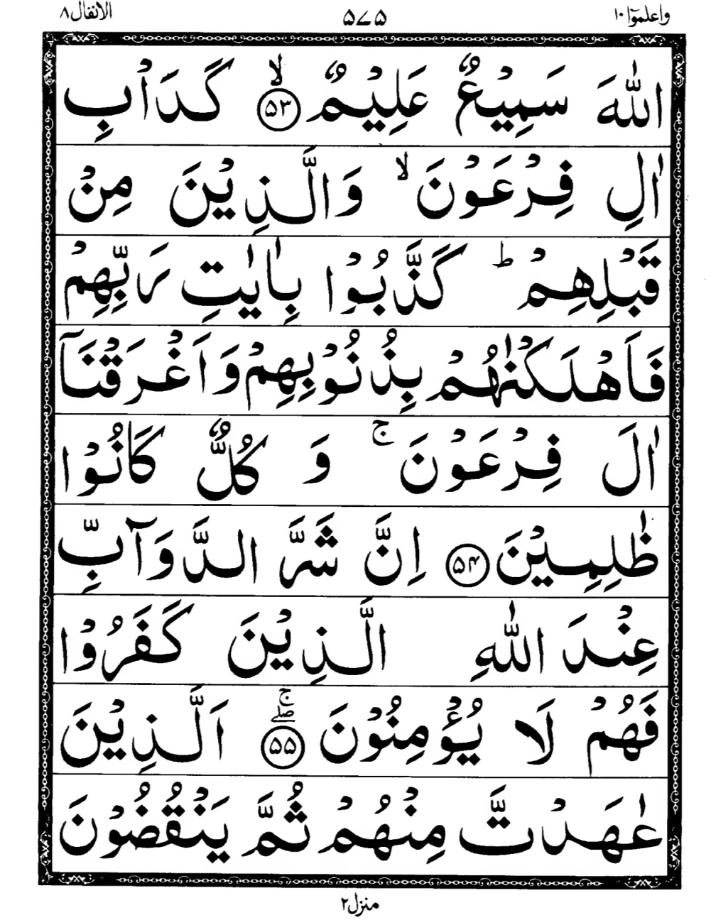 واعلموٓا ١٠ ۵۷۵ الانفال ٨
اللّٰهَ سَمِيْعٌ عَلِيْمٌ ۙ﴿۵۳﴾ كَدَاْبِ
اٰلِ فِرْعَوْنَ ۙ وَالَّذِيْنَ مِنْ
قَبْلِهِمْ ؕ كَذَّبُوْا بِاٰيٰتِ رَبِّهِمْ
فَاَهْلَكْنٰهُمْ بِذُنُوْبِهِمْ وَاَغْرَقْنَاۤ
اٰلَ فِرْعَوْنَ ۚ وَ كُلٌّ كَانُوْا
ظٰلِمِيْنَ ﴿۵۴﴾ اِنَّ شَرَّ الدَّوَآبِّ
عِنْدَ اللّٰهِ الَّذِيْنَ كَفَرُوْا
فَهُمْ لَا يُؤْمِنُوْنَ ۖۚ﴿۵۵﴾ اَلَّذِيْنَ
عٰهَدْتَّ مِنْهُمْ ثُمَّ يَنْقُضُوْنَ
منزل ٢